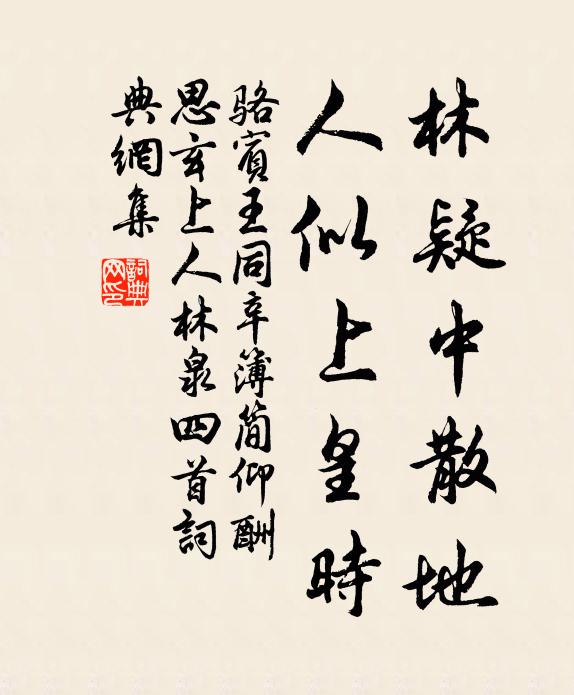 林疑中散地
人似上皇時
駱賓王同辛簿簡仰酬
思玄上人林泉四首詞
典網集
詞典網印